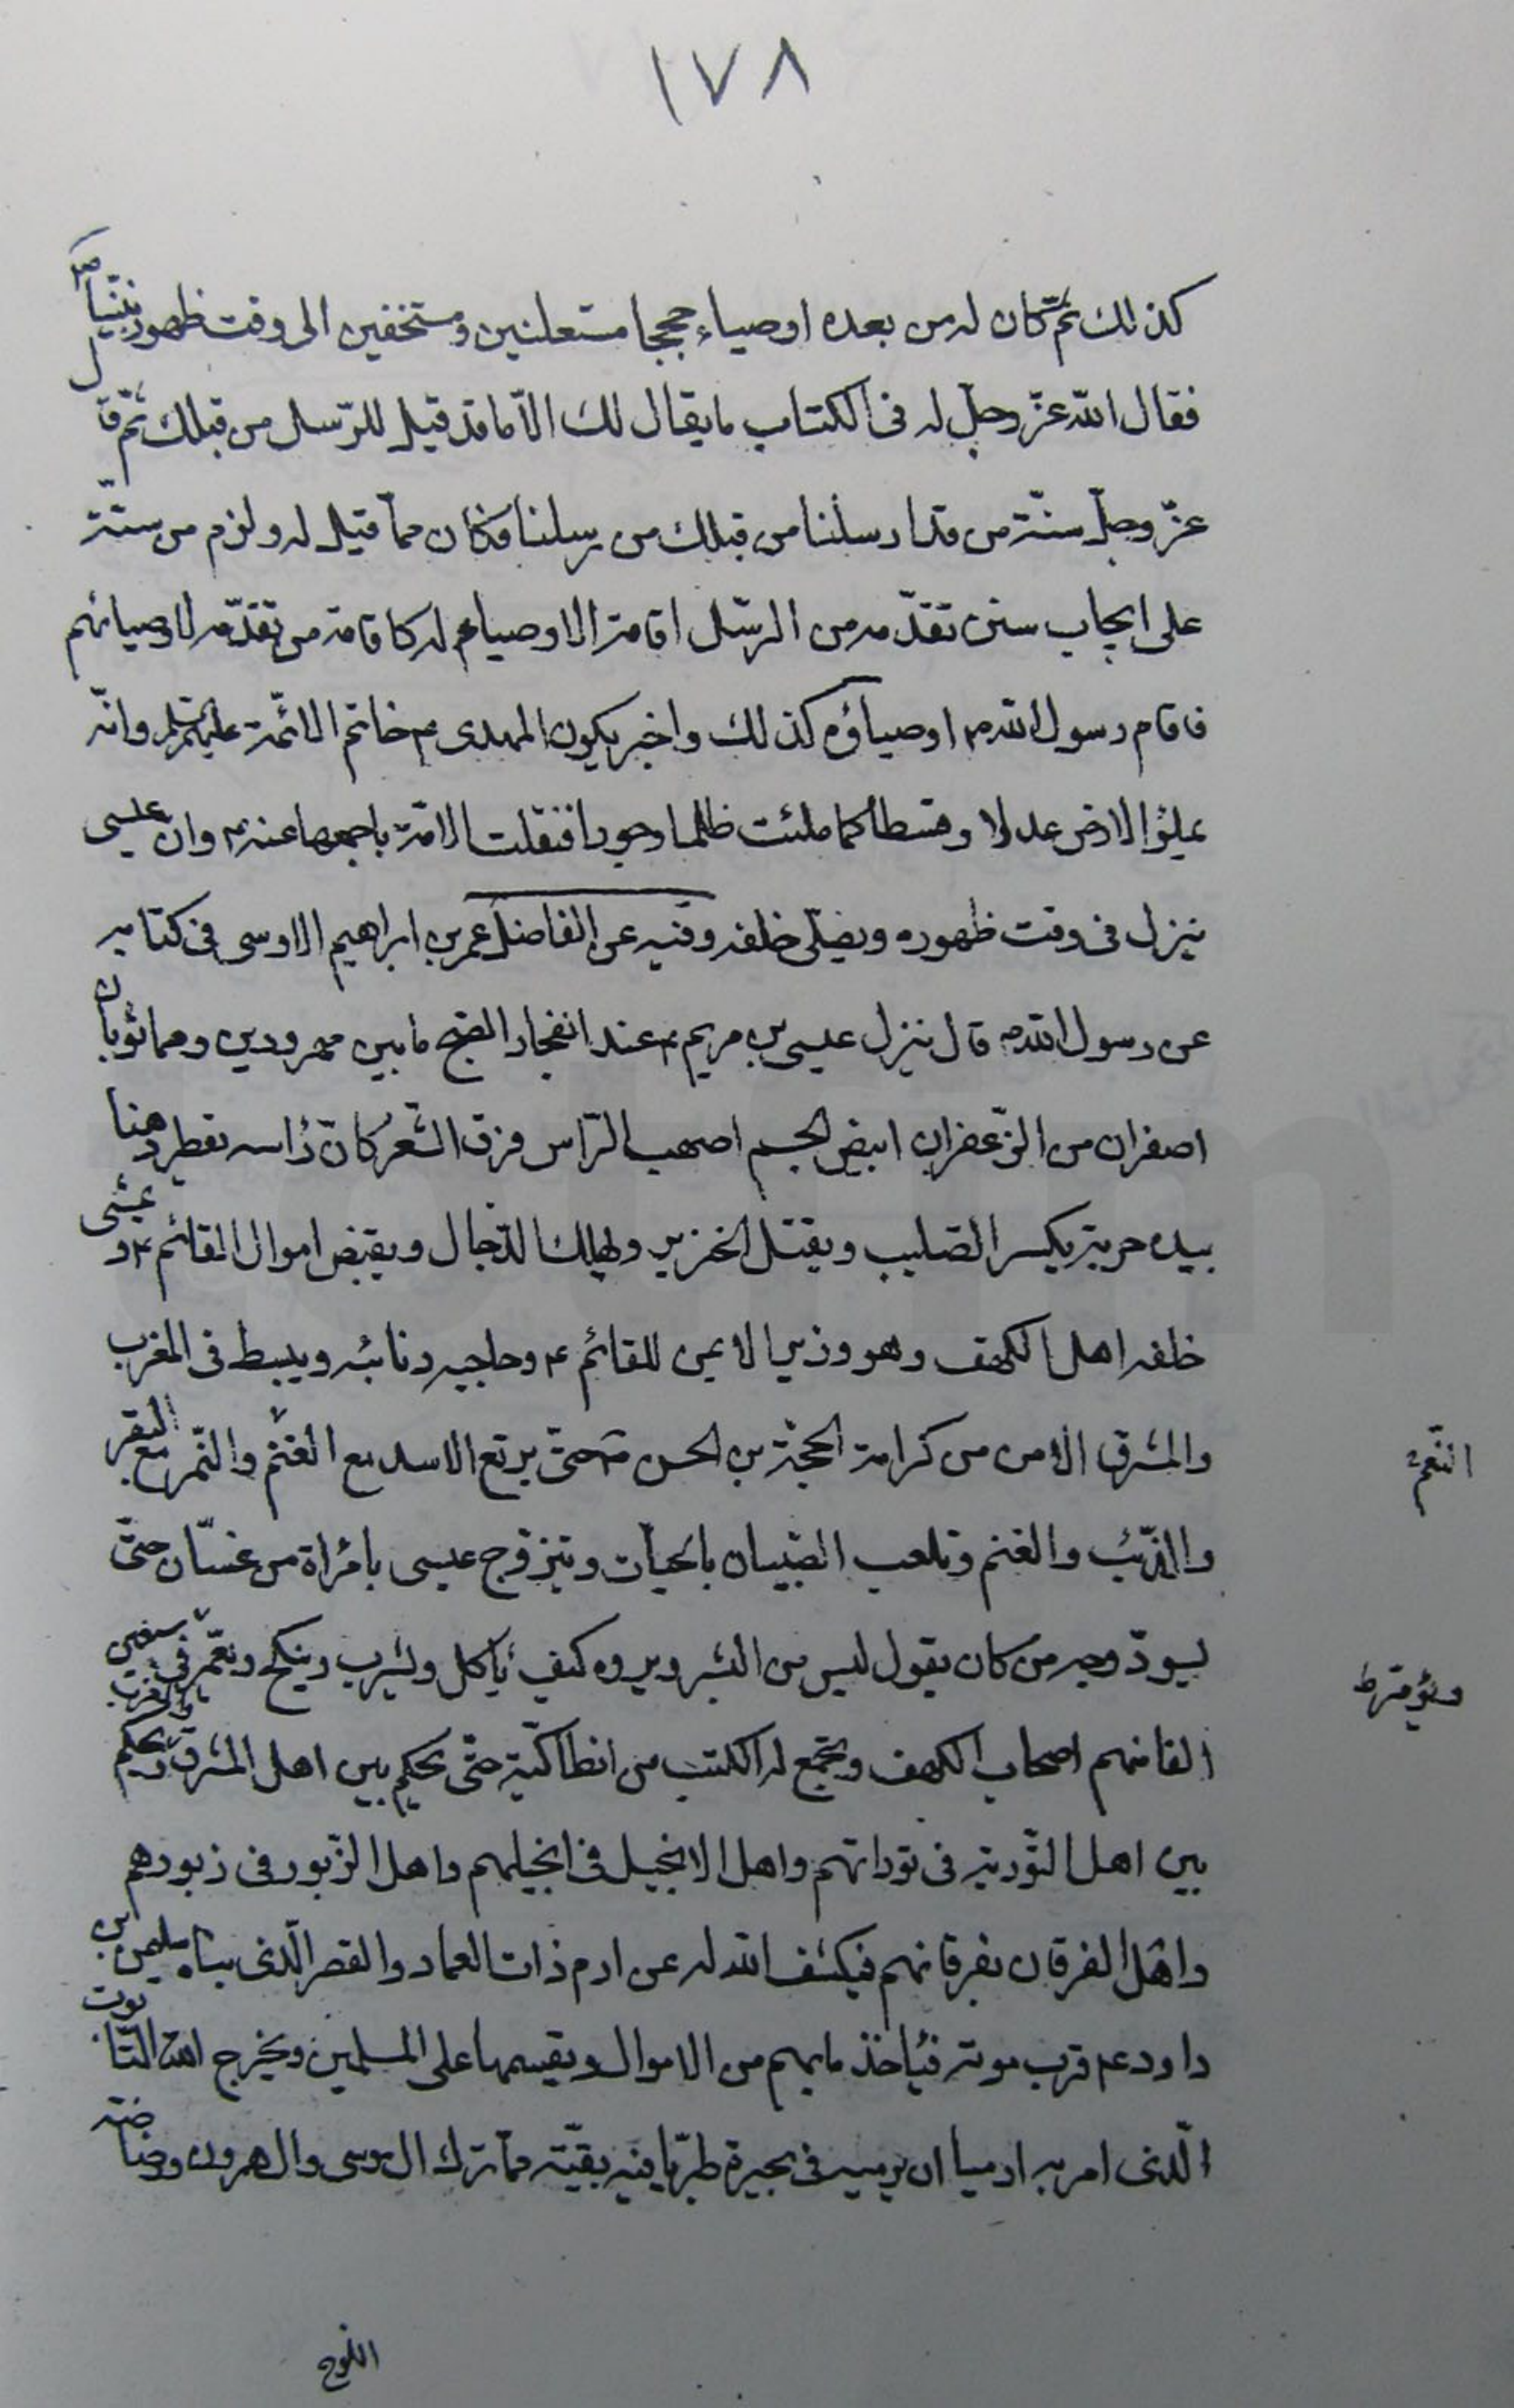 ١٧٨
كذلك ثم كان له من بعده اوصياء حججا مستعلنين ومستخفين الى وقت ظهور نبينا ص
فقال الله عزّ وجلّ له فى الكتاب ما يقال لك الّا ما قد قيل للرّسل من قبلك ثمّ قال
عزّ وجلّ سنّة من قد ارسلنا من قبلك من رسلنا فكان ممّا قيل له ولزم من سنّة
على ايجاب سنن تقدّمه من الرسّل اقامة الاوصياء له كاقامة من تقدّمه لاوصيائهم
فاقام رسول الله ص اوصياؤه كذلك واخبر بكون المهدى ع خاتم الائمّة عليهم السلم وانّه
يملؤ الارض عدلا وقسطا كما ملئت ظلما وجورا فنقلت الامّة باجمعها عنه ع وان عيسى
ينزل فى وقت ظهوره ويصلّى خلفه وفيه عن الفاضل عمر بن ابراهيم الاوسى فى كتابه
عن رسول الله ص قال ينزل عيسى بن مريم ع عند انفجار الصّبح ما بين مهرودين وهما ثوبان
اصفران من الزّعفران ابيض الجسم اصهب الرّاس فرق الشّعر كانّ رأسه يقطر دهنا
بيده حربة يكسر الصّليب ويقتل الخنزير ويهلك الدّجال ويقبض اموال القائم ع ويمشى
خلفه اهل الكهف وهو وزير الايمن للقائم ع وحاجبه ونائبه ويبسط فى المغرب
والمشرق الامن من كرامة الحجّة بن الحسن ع حتّى يرتع الاسد مع الغنم والنّمر مع البقر
النّعم
والذّئب والغنم وتلعب الصّبيان بالحيّات ويتزوّج عيسى بامرأة من غسّان حتّى
يسودّ وجه من كان يقول ليس من البشر ويروه كيف يأكل ويشرب وينكح ويعمّر فى
الفا منهم اصحاب الكهف ويجمع له الكتب من انطاكيّة حتّى يحكم بين اهل المشرق والمغرب ويحكم
بين اهل التّورية فى توراتهم واهل الانجيل فى انجيلهم واهل الزّبور فى زبورهم
واهل الفرقان بفرقانهم فيكشف الله له عن ارم ذات العماد والقصر الّذى بناه سليمن بن
داود ع قرب موته فيأخذ ما بهم من الاموال ويقسمها على المسلمين ويخرج الله التّابوت
الّذى امر به ارميا ان يرميه فى بحيرة طبريّا فيه بقيّة ممّا ترك ال موسى وال هرون ورضاضة
اللوح